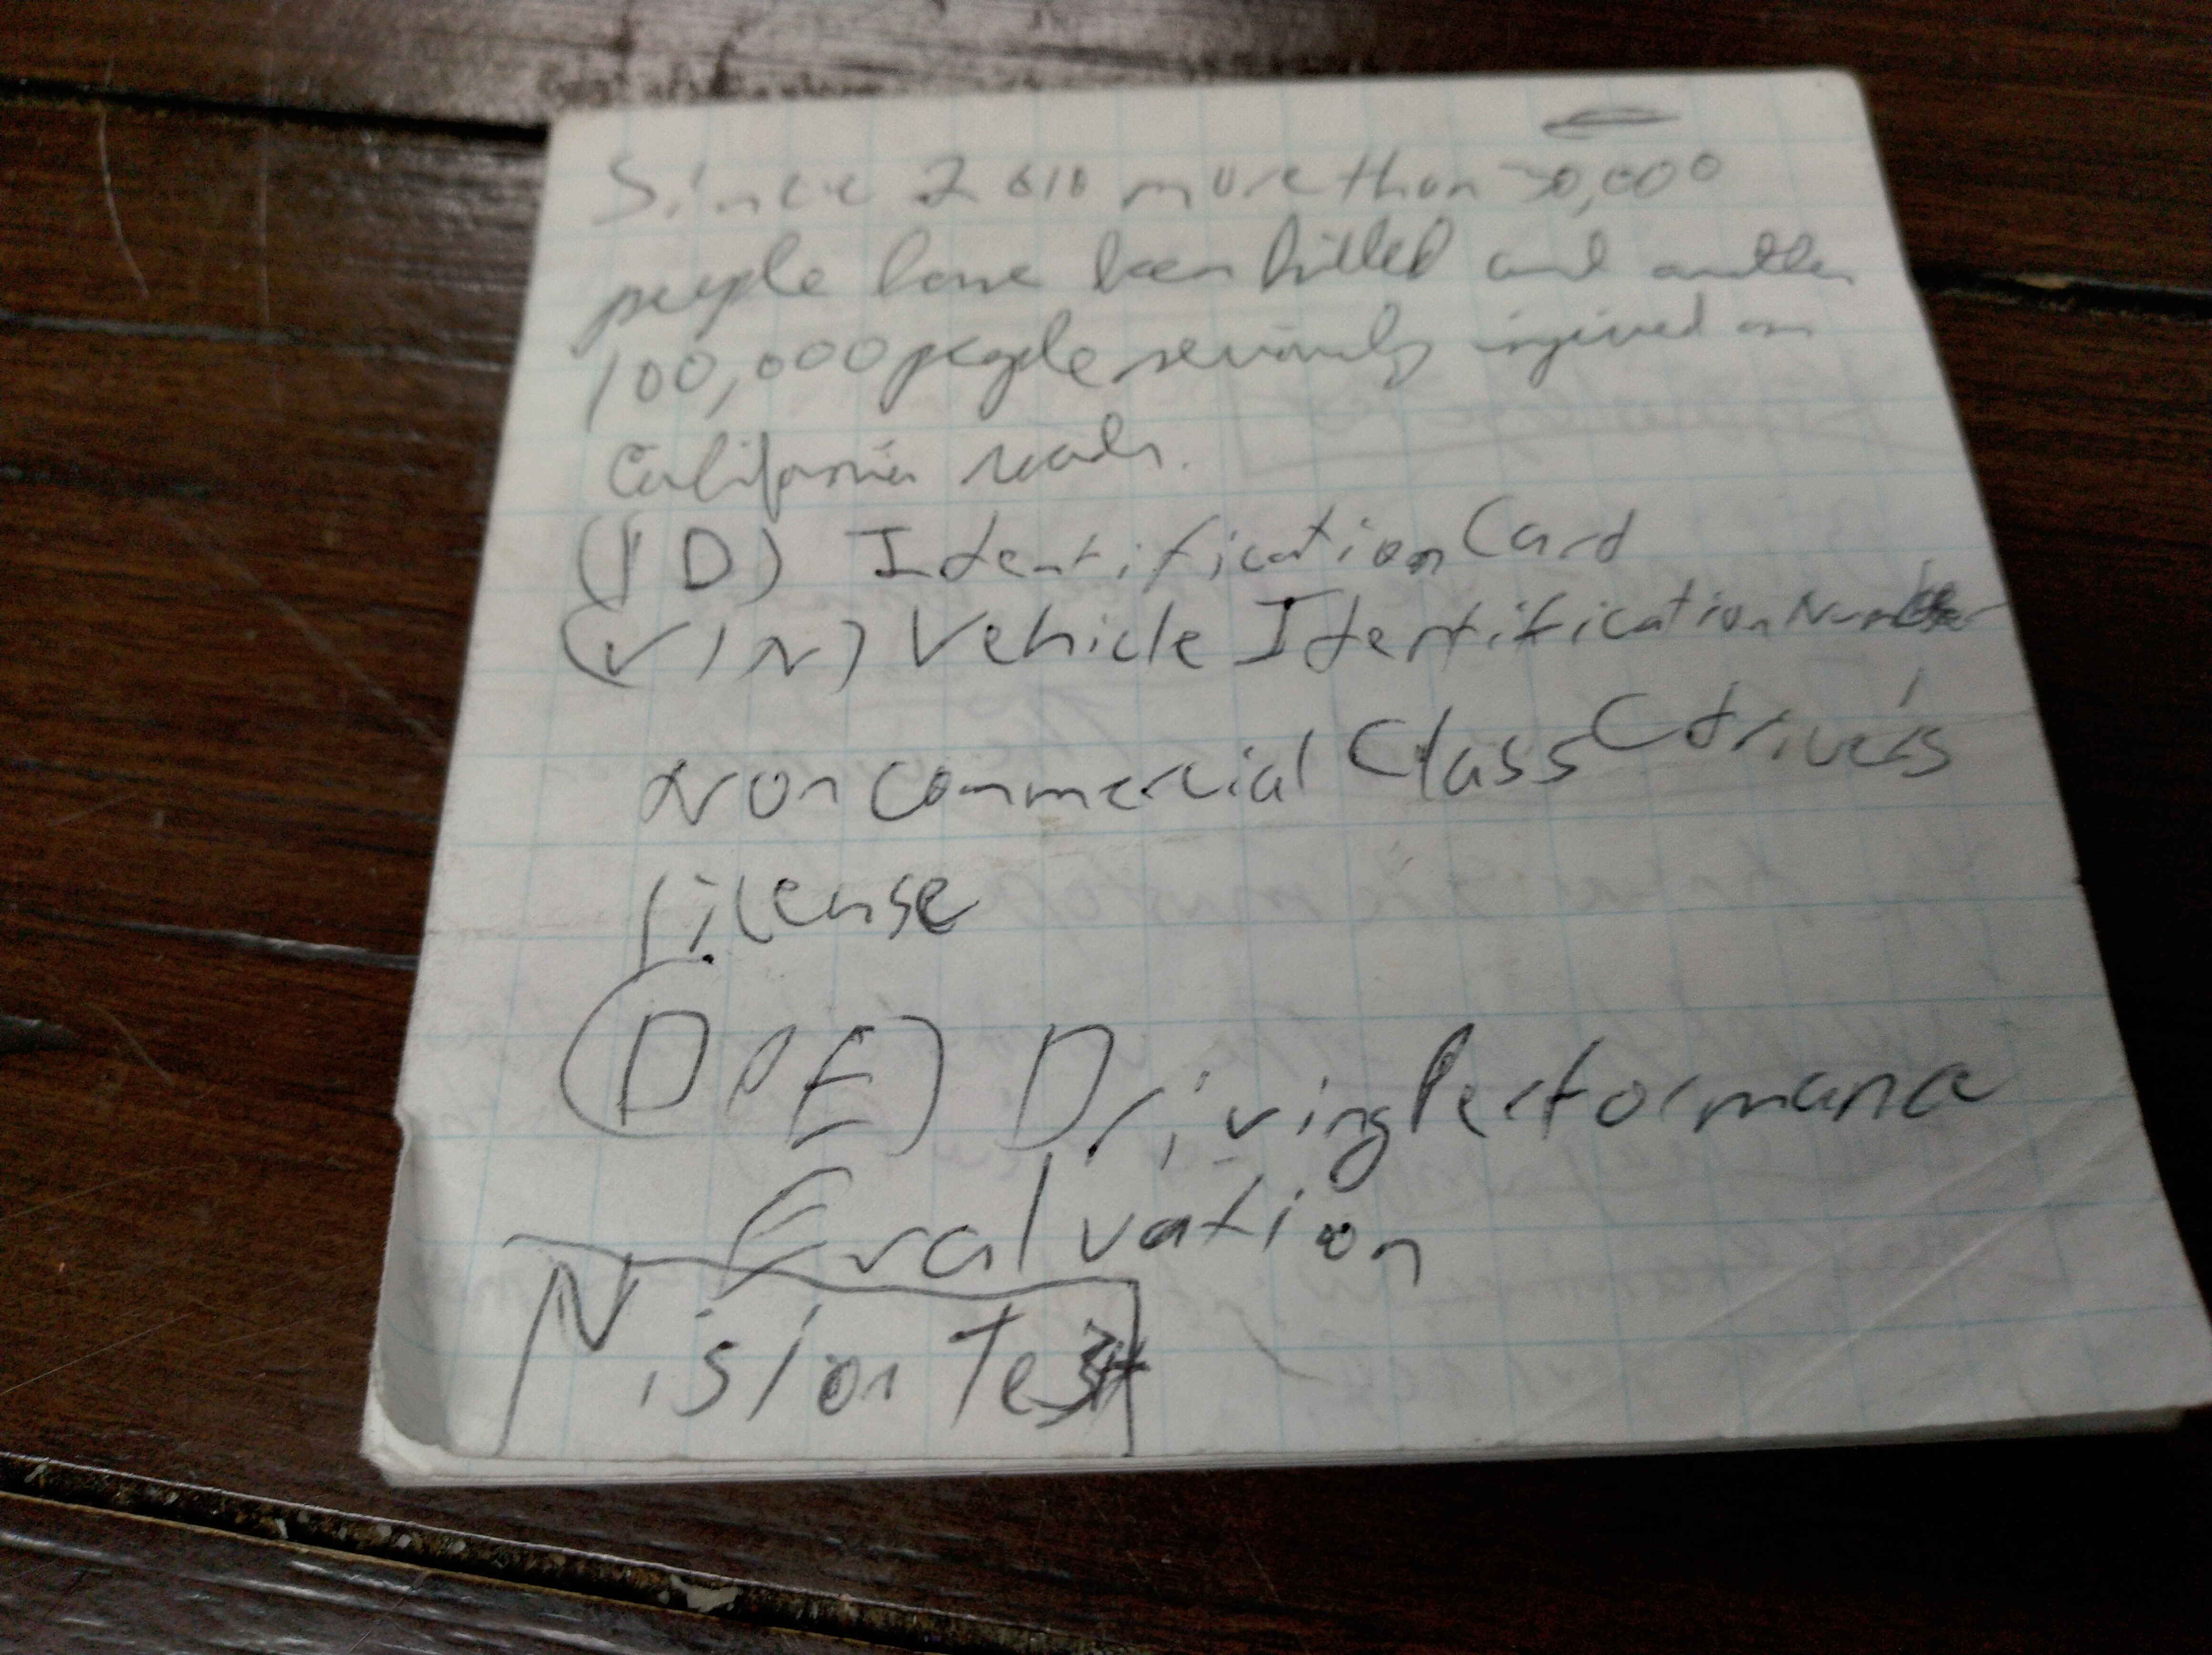 Since 2010 more than 30,000
people have been killed and another
100,000 people seriously injured on
California roads.
(ID) Identification Card
(VIN) Vehicle Identification Number
Noncommercial Class C driver's
license
(DPE) Driving Performance
Evaluation
Vision Test